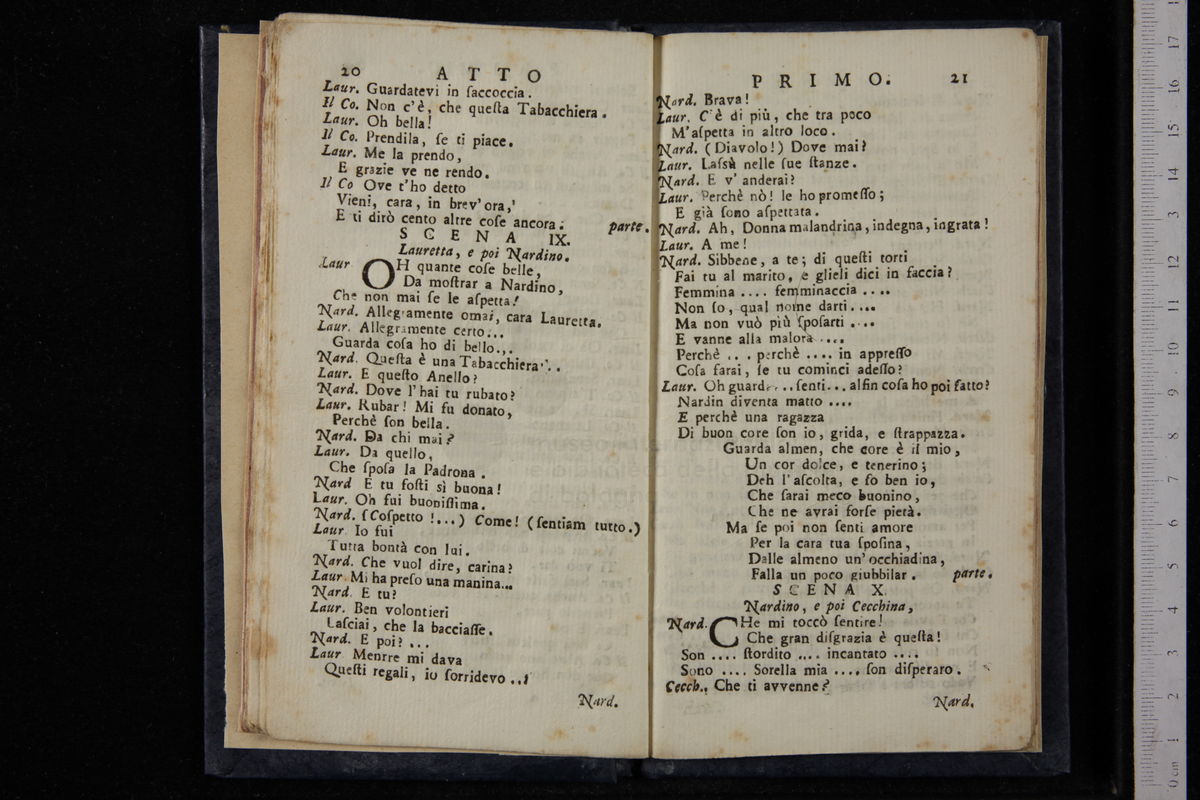 20 ATTO
Laur. Guardatevi in ſaccoccia.
Il Co. Non c'è, che queſta Tabacchiera.
Laur. Oh bella!
Il Co. Prendila, ſe ti piace.
Laur. Me la prendo,
E grazie ve ne rendo.
Il Co Ove t'ho detto
Vieni, cara, in brev'ora,
E ti dirò cento altre coſe ancora. parte.
SCENA IX.
Lauretta, e poi Nardino.
Laur OH quante coſe belle,
Da moſtrar a Nardino,
Che non mai ſe le aſpetta!
Nard. Allegramente omai, cara Lauretta.
Laur. Allegramente certo...
Guarda coſa ho di bello...
Nard. Queſta è una Tabacchiera...
Laur. E queſto Anello?
Nard. Dove l'hai tu rubato?
Laur. Rubar! Mi fu donato,
Perchè ſon bella.
Nard. Da chi mai?
Laur. Da quello,
Che ſpoſa la Padrona.
Nard E tu foſti sì buona!
Laur. Oh fui buoniſſima.
Nard. (Coſpetto!...) Come! (ſentiam tutto.)
Laur Io fui
Tutta bontà con lui.
Nard. Che vuol dire, carina?
Laur Mi ha preſo una manina...
Nard. E tu?
Laur. Ben volontieri
Laſciai, che la bacciaſſe.
Nard. E poi? ...
Laur Menrre mi dava
Queſti regali, io ſorridevo ...
Nard.
PRIMO. 21
Nard. Brava!
Laur. C'è di più, che tra poco
M'aſpetta in altro loco.
Nard. (Diavolo!) Dove mai?
Laur. Laſsù nelle ſue ſtanze.
Nard. E v' anderai?
Laur. Perchè nò! le ho promeſſo;
E già ſono aſpettata.
Nard. Ah, Donna malandrina, indegna, ingrata!
Laur. A me!
Nard. Sibbene, a te; di queſti torti
Fai tu al marito, e glieli dici in faccia?
Femmina .... femminaccia ....
Non ſo, qual nome darti....
Ma non vuò più ſpoſarti ....
E vanne alla malora ....
Perchè ... perchè .... in appreſſo
Coſa farai, ſe tu cominci adeſſo?
Laur. Oh guard... ſenti... alfin coſa ho poi fatto?
Nardin diventa matto ....
E perchè una ragazza
Di buon core ſon io, grida, e ſtrappazza.
Guarda almen, che core è il mio,
Un cor dolce, e tenerino;
Deh l'aſcolta, e ſo ben io,
Che ſarai meco buonino,
Che ne avrai forſe pietà.
Ma ſe poi non ſenti amore
Per la cara tua ſpoſina,
Dalle almeno un' occhiadina,
Falla un poco giubbilar. parte.
SCENA X.
Nardino, e poi Cecchina,
Nard. CHe mi toccò ſentire!
Che gran diſgrazia è queſta!
Son .... ſtordito .... incantato ....
Sono .... Sorella mia .... ſon diſperaro.
Cecch. Che ti avvenne?
Nard.